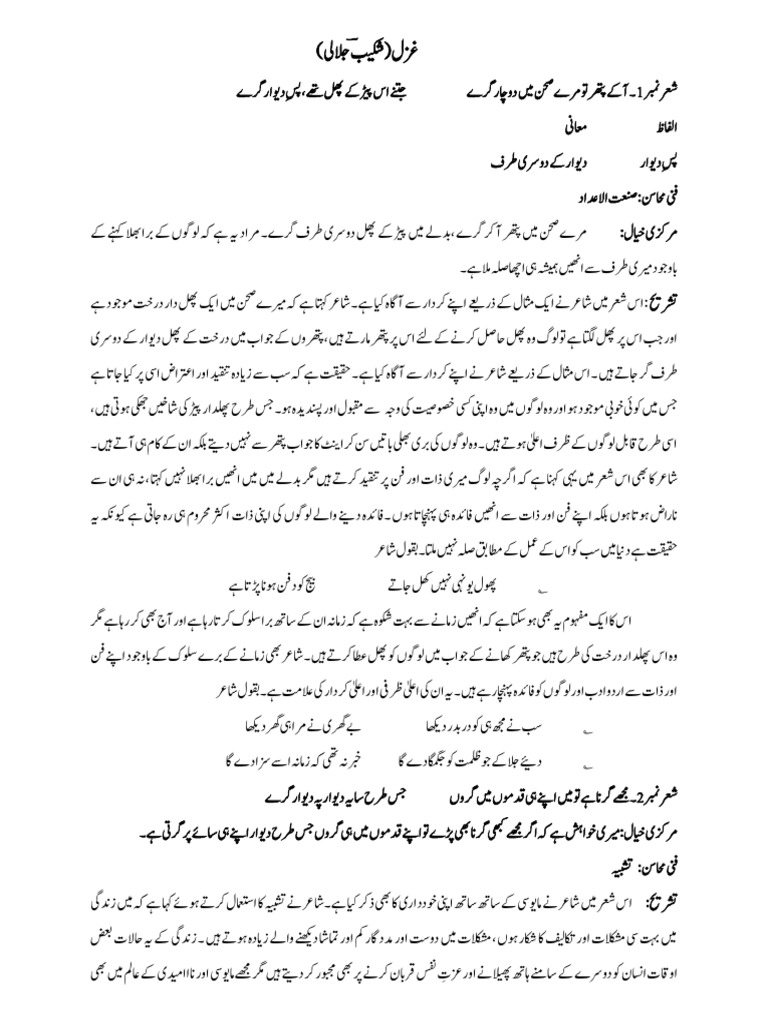 غزل (شکیبؔ جلالی)
شعر نمبر 1۔ آکے پتھر تو مرے صحن میں دو چار گرے جتنے اس پیڑ کے پھل تھے، پسِ دیوار گرے
الفاظ معانی
پسِ دیوار دیوار کے دوسری طرف
فنی محاسن: صنعت الاعداد
مرکزی خیال: مرے صحن میں پتھر آ کر گرے، بدلے میں پیڑ کے پھل دوسری طرف گرے۔ مراد یہ ہے کہ لوگوں کے برا بھلا کہنے کے
باوجود میری طرف سے انھیں ہمیشہ ہی اچھا صلہ ملا ہے۔
تشریح: اس شعر میں شاعر نے ایک مثال کے ذریعے اپنے کردار سے آگاہ کیا ہے۔ شاعر کہتا ہے کہ میرے صحن میں ایک پھل دار درخت موجود ہے
اور جب اس پر پھل لگتا ہے تو لوگ وہ پھل حاصل کرنے کے لئے اس پر پتھر مارتے ہیں، پتھروں کے جواب میں درخت کے پھل دیوار کے دوسری
طرف گر جاتے ہیں۔ اس مثال کے ذریعے شاعر نے اپنے کردار سے آگاہ کیا ہے۔ حقیقت ہے کہ سب سے زیادہ تنقید اور اعتراض اسی پر کیا جاتا ہے
جس میں کوئی خوبی موجود ہو اور وہ لوگوں میں وہ اپنی کسی خصوصیت کی وجہ سے مقبول اور پسندیدہ ہو۔ جس طرح پھلدار پیڑ کی شاخیں جھکی ہوتی ہیں،
اسی طرح قابل لوگوں کے ظرف اعلیٰ ہوتے ہیں۔ وہ لوگوں کی بری بھلی باتیں سن کر اینٹ کا جواب پتھر سے نہیں دیتے بلکہ ان کے کام ہی آتے ہیں۔
شاعر کا بھی اس شعر میں یہی کہنا ہے کہ اگرچہ لوگ میری ذات اور فن پر تنقید کرتے ہیں مگر بدلے میں میں انھیں برا بھلا نہیں کہتا، نہ ہی ان سے
ناراض ہوتا ہوں بلکہ اپنے فن اور ذات سے انھیں فائدہ ہی پہنچاتا ہوں۔ فائدہ دینے والے لوگوں کی اپنی ذات اکثر محروم ہی رہ جاتی ہے کیونکہ یہ
حقیقت ہے دنیا میں سب کو اس کے عمل کے مطابق صلہ نہیں ملتا۔ بقول شاعر
؎ پھول یونہی نہیں کھل جاتے بیج کو دفن ہونا پڑتا ہے
اس کا ایک مفہوم یہ بھی ہو سکتا ہے کہ انھیں زمانے سے بہت شکوہ ہے کہ زمانہ ان کے ساتھ برا سلوک کرتا رہا ہے اور آج بھی کر رہا ہے مگر
وہ اس پھلدار درخت کی طرح ہیں جو پتھر کھانے کے جواب میں لوگوں کو پھل عطا کرتے ہیں۔ شاعر بھی زمانے کے برے سلوک کے باوجود اپنے فن
اور ذات سے اردو ادب اور لوگوں کو فائدہ پہنچا رہے ہیں۔ یہ ان کی اعلیٰ ظرفی اور اعلیٰ کردار کی علامت ہے۔ بقول شاعر
؎ سب نے مجھ ہی کو در بدر دیکھا بے گھری نے مرا ہی گھر دیکھا
؎ دیئے جلا کے جو ظلمت کو جگمگا دے گا خبر نہ تھی کہ زمانہ اسے سزا دے گا
شعر نمبر 2۔ مجھے گرنا ہے تو میں اپنے ہی قدموں میں گروں جس طرح سایہ دیوار پہ دیوار گرے
مرکزی خیال: میری خواہش ہے کہ اگر مجھے کبھی گرنا بھی پڑے تو اپنے قدموں میں ہی گروں جس طرح دیوار اپنے ہی سائے پر گرتی ہے۔
فنی محاسن: تشبیہ
تشریح: اس شعر میں شاعر نے مایوسی کے ساتھ ساتھ اپنی خودداری کا بھی ذکر کیا ہے۔ شاعر نے تشبیہ کا استعمال کرتے ہوئے کہا ہے کہ میں زندگی
میں بہت سی مشکلات اور تکالیف کا شکار ہوں، مشکلات میں دوست اور مددگار کم اور تماشا دیکھنے والے زیادہ ہوتے ہیں۔ زندگی کے یہ حالات بعض
اوقات انسان کو دوسرے کے سامنے ہاتھ پھیلانے اور عزتِ نفس قربان کرنے پر بھی مجبور کر دیتے ہیں مگر مجھے مایوسی اور ناامیدی کے عالم میں بھی